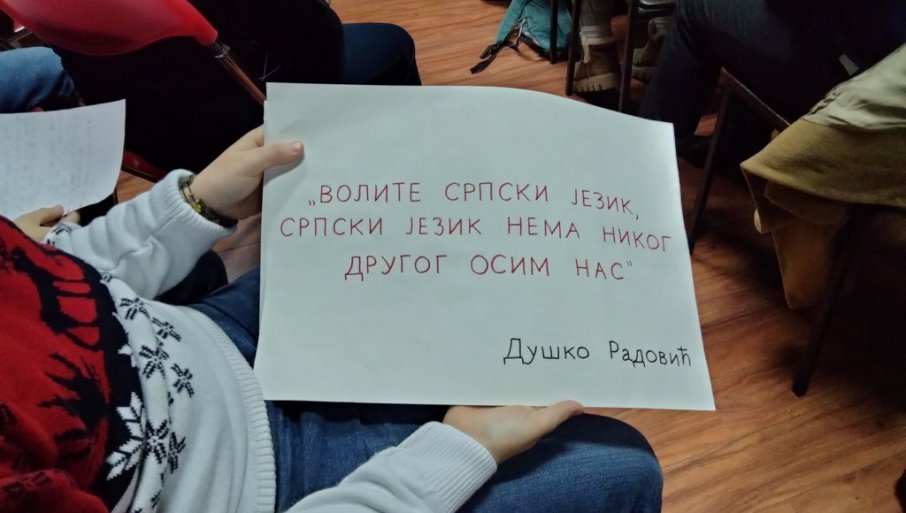 „ВОЛИТЕ СРПСКИ ЈЕЗИК,
СРПСКИ ЈЕЗИК НЕМА НИКОГ
ДРУГОГ ОСИМ НАС“
Душко Радовић